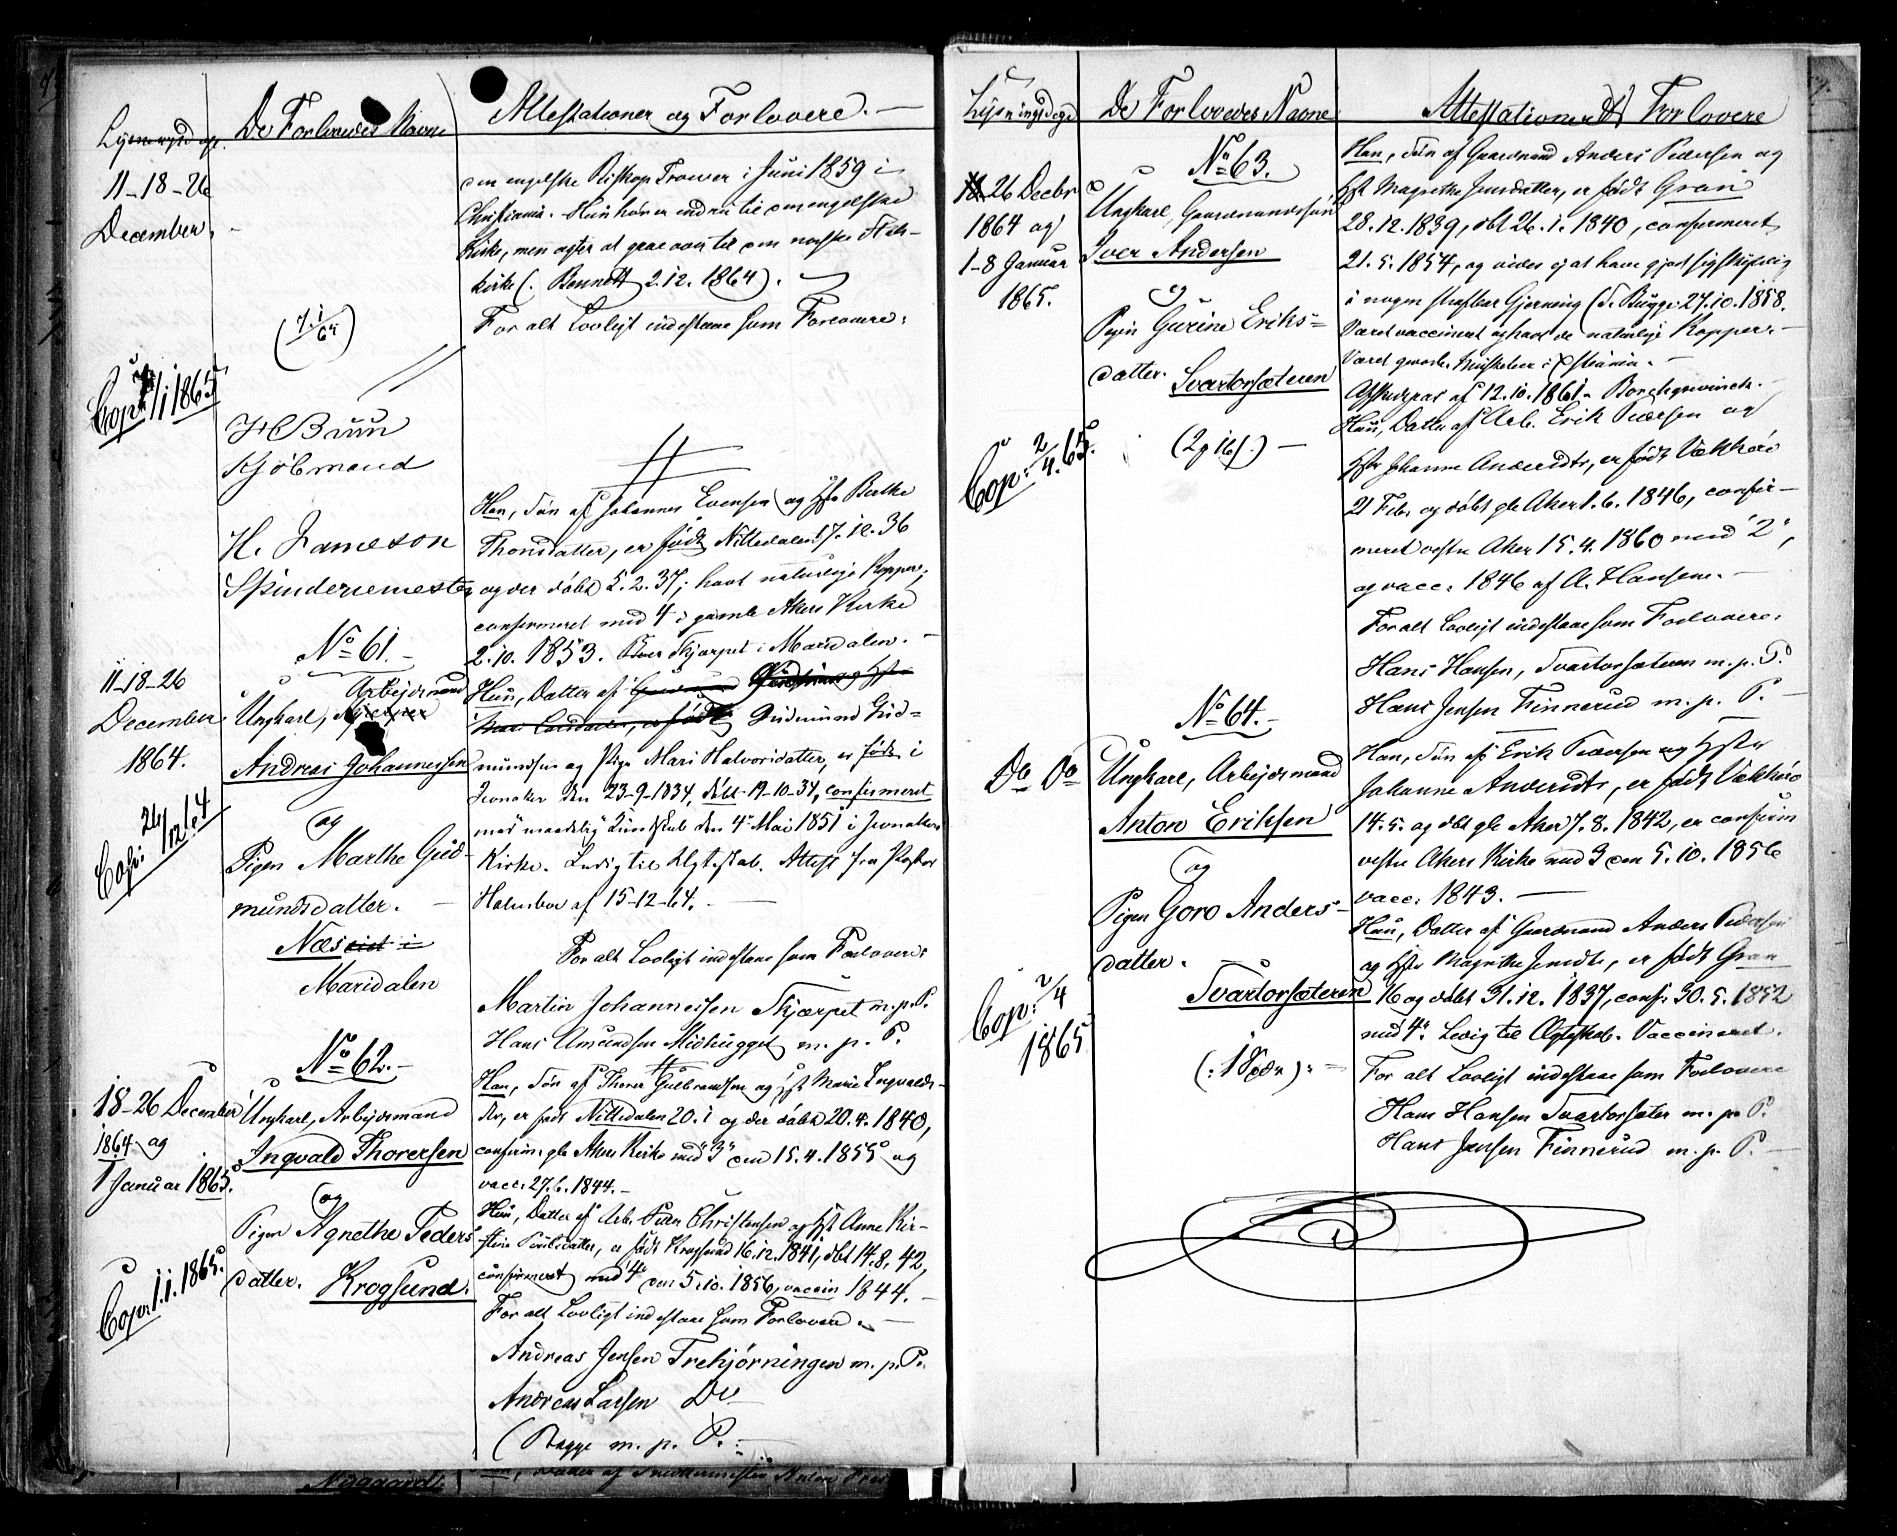 Lysningsdage. De Forlovedes Navne Attestationer og Forlovere. —
11-18-26
December.
den engelske Biskop Trower i Juni 1859 i
Christiania. Hun hører endnu til den engelske
Kirke, men agter at gaae over til den norske Stats-
kirke (: Bennett 2.12. 1864).
For alt Lovligt indestaae som Forlovere:
(7.1/65)
Cop: 7/1 1865
H C Bruun
Kjøbmand
H. Jameson
Spinderiemester
No 61.
11-18-26
December
1864.
Cop: 26/12 64
Ungkarl, Arbeidsmand
Andreas Johannessen
og
Pigen Marthe Gud-
mundsdatter.
Næs eiet i
Maridalen
Han, Søn af Johannes Evensen og Hst Berthe
Thorsdatter, er født Nittedalen 17.12.36
og der døbt 5.2.37; havt naturlige Kopper;
confirmeret med 4 i gamle Akers Kirke
2.10.1853. Boer Skjærpet i Maridalen. —
Hun, Datter af
født Gudmund Gud-
mundsen og Pige Mari Halvorsdatter, er født i
Jevnaker den 23-9-1834, døbt 19-10-34, confirmeret
med maadelig Kundskab den 4de Mai 1851 i Jevnakers
Kirke. Ledig til Ægteskab. Attest fra Pastor
Halmboe af 15-12-64. —
For alt Lovligt indestaae som Forlovere:
Martin Johannessen Skjærpet m.p.P.
Hans Amundsen Midhugget m.p.P.
No 62. —
18-26 December
1864 og
1 Januar 1865.
Cop: 1.1.1865.
Ungkarl, Arbeidsmand
Ingvald Thoresen
og
Pigen Agnethe Peders-
datter. Krogsund.
Han, Søn af Thorer Gulbrandsen og Hst Marie Ingvalds-
dtr, er født Nittedalen 20.1 og der døbt 20.4.1840,
confirm. gle Akers Kirke med "3" den 15.4.1855 og
vacc. 27.6.1844. —
Hun, Datter af Arb. Peder Christensen og Hst Anne Kir-
stine Poulsdatter, er født Krogsund 16.12.1841, døbt 14.8.42,
confirmeret med 4 den 5.10.1856, vaccin 1844. —
For alt Lovligt indestaae som Forlovere. —
Andreas Jensen Trehjørningen m.p.P.
Andreas Larsen Do
(Bagge m.p.P. :—
Lysningsdage De Forlovedes Navne Attestationer og Forlovere
No 63.
26 Decbr
1864 og
1-8 Januar
1865.
Cop: 2/4.65.
Ungkarl, Gaardmandssøn
Iver Andersen
og
Pigen Gurine Eriks-
datter. Svartorsæteren
(2 g 16 s.) —
Han, Søn af Gaardmand Anders Pedersen og
Hst Magrethe Jensdatter, er født Gran
28.12.1839, døbt 26.1.1840, confirmeret
21.5.1854, og vides ej at have gjort sig skyldig
i nogen strafbar Gjerning (S. Bugge 27.10.1858.
Været vaccineret og havt de naturlige Kopper. —
Været gevorb. Musketeer i Xstiania. —
Afskedspas af 12.10.1861. Borchgrevinck. —
Hun, Datter af Arb. Erik Pedersen og
Hst Johanne Andersdtr, er født Vækkerø
21 Febr. og døbt gle Aker 1.6.1846, confir-
meret vestre Aker 15.4.1860 med "2",
og vacc. 1846 af A. Hansen. —
For alt Lovligt indestaae som Forlovere:
Hans Hansen, Svartorsæteren m.p.P.
Hans Jensen Finnerud m.p.P. —
No 64. —
Do Do
Cop: 2/4
1865
Ungkarl, Arbeidsmand
Anton Eriksen
og
Pigen Goro Anders-
datter. —
Svartorsæteren
(: 1 Spdr): —
Han, Søn af Erik Pedersen og Hstr
Johanne Andersdtr, er født Vækkerø
14.5. og døbt gle Aker 7.8.1842, er confirm
vestre Akers Kirke med 3 den 5.10.1856
vacc. 1843. —
Hun, Datter af Gaardmand Anders Pedersen
og Hst Magrethe Jensdtr, er født Gran
16 og døbt 31.12.1837, conf. 30.5.1852
med 4. Ledig til Ægteskab. Vaccineret.
For alt Lovligt indestaae som Forlovere
Hans Hansen Svartorsæter m.p.P.
Hans Jensen Finnerud m.p.P. —